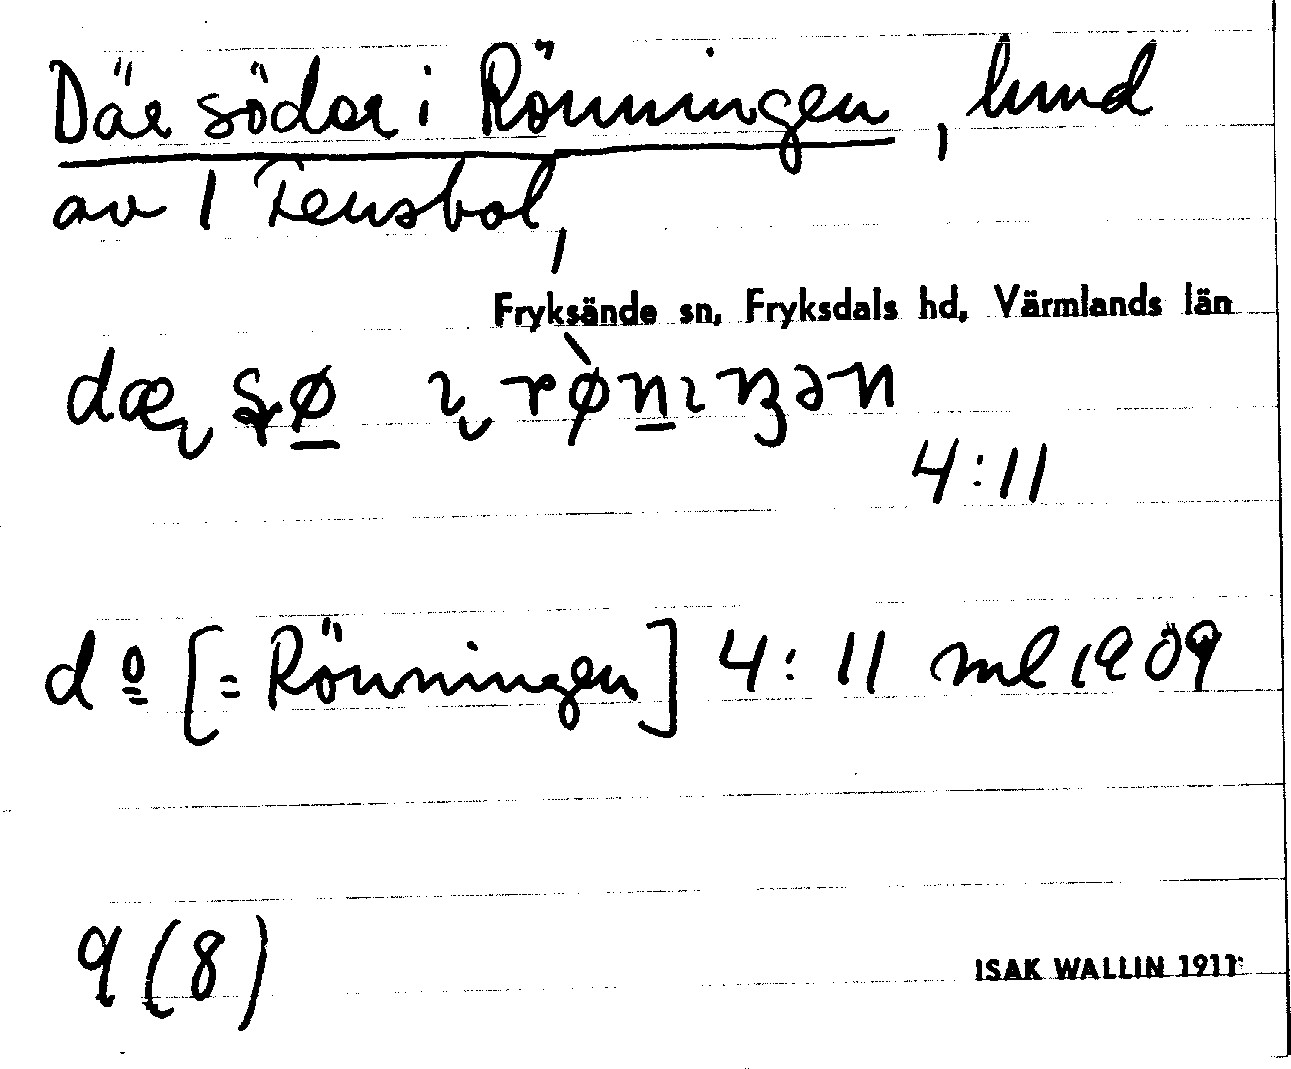 Där söder i Rönningen, hmd
av 1 Fensbol,
Fryksände sn, Fryksdals hd, Värmlands län
4:11
dº [= Rönningen] 4:11 ml 1909
9 (8)
ISAK WALLIN 1911